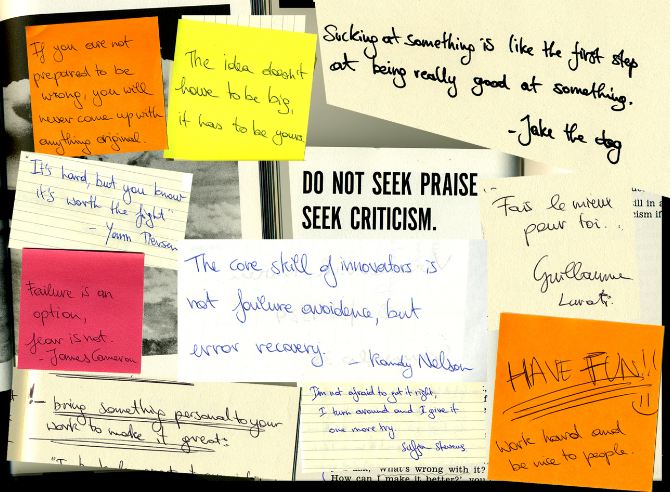 If you are not
prepared to be
wrong, you will
never come up with
anything original.
The idea doesn't
have to be big,
it has to be yours.
Sucking at something is like the first step
at being really good at something.
- Jake the dog
"It's hard, but you know
it's worth the fight"
DO NOT SEEK PRAISE
SEEK CRITICISM.
Fais le mieux
pour toi...
Guillaume
Failure is an
option,
fear is not.
- James Cameron
The core skill of innovators is
not failure avoidance, but
error recovery.
- Randy Nelson
HAVE FUN!!
work hard and
be nice to people.
! bring something personal to your
work to make it great:
I'm not afraid to get it right,
I turn around and I give it
one more try.
Sufjan Stevens
what's wrong with it?
How can I make it better?', you